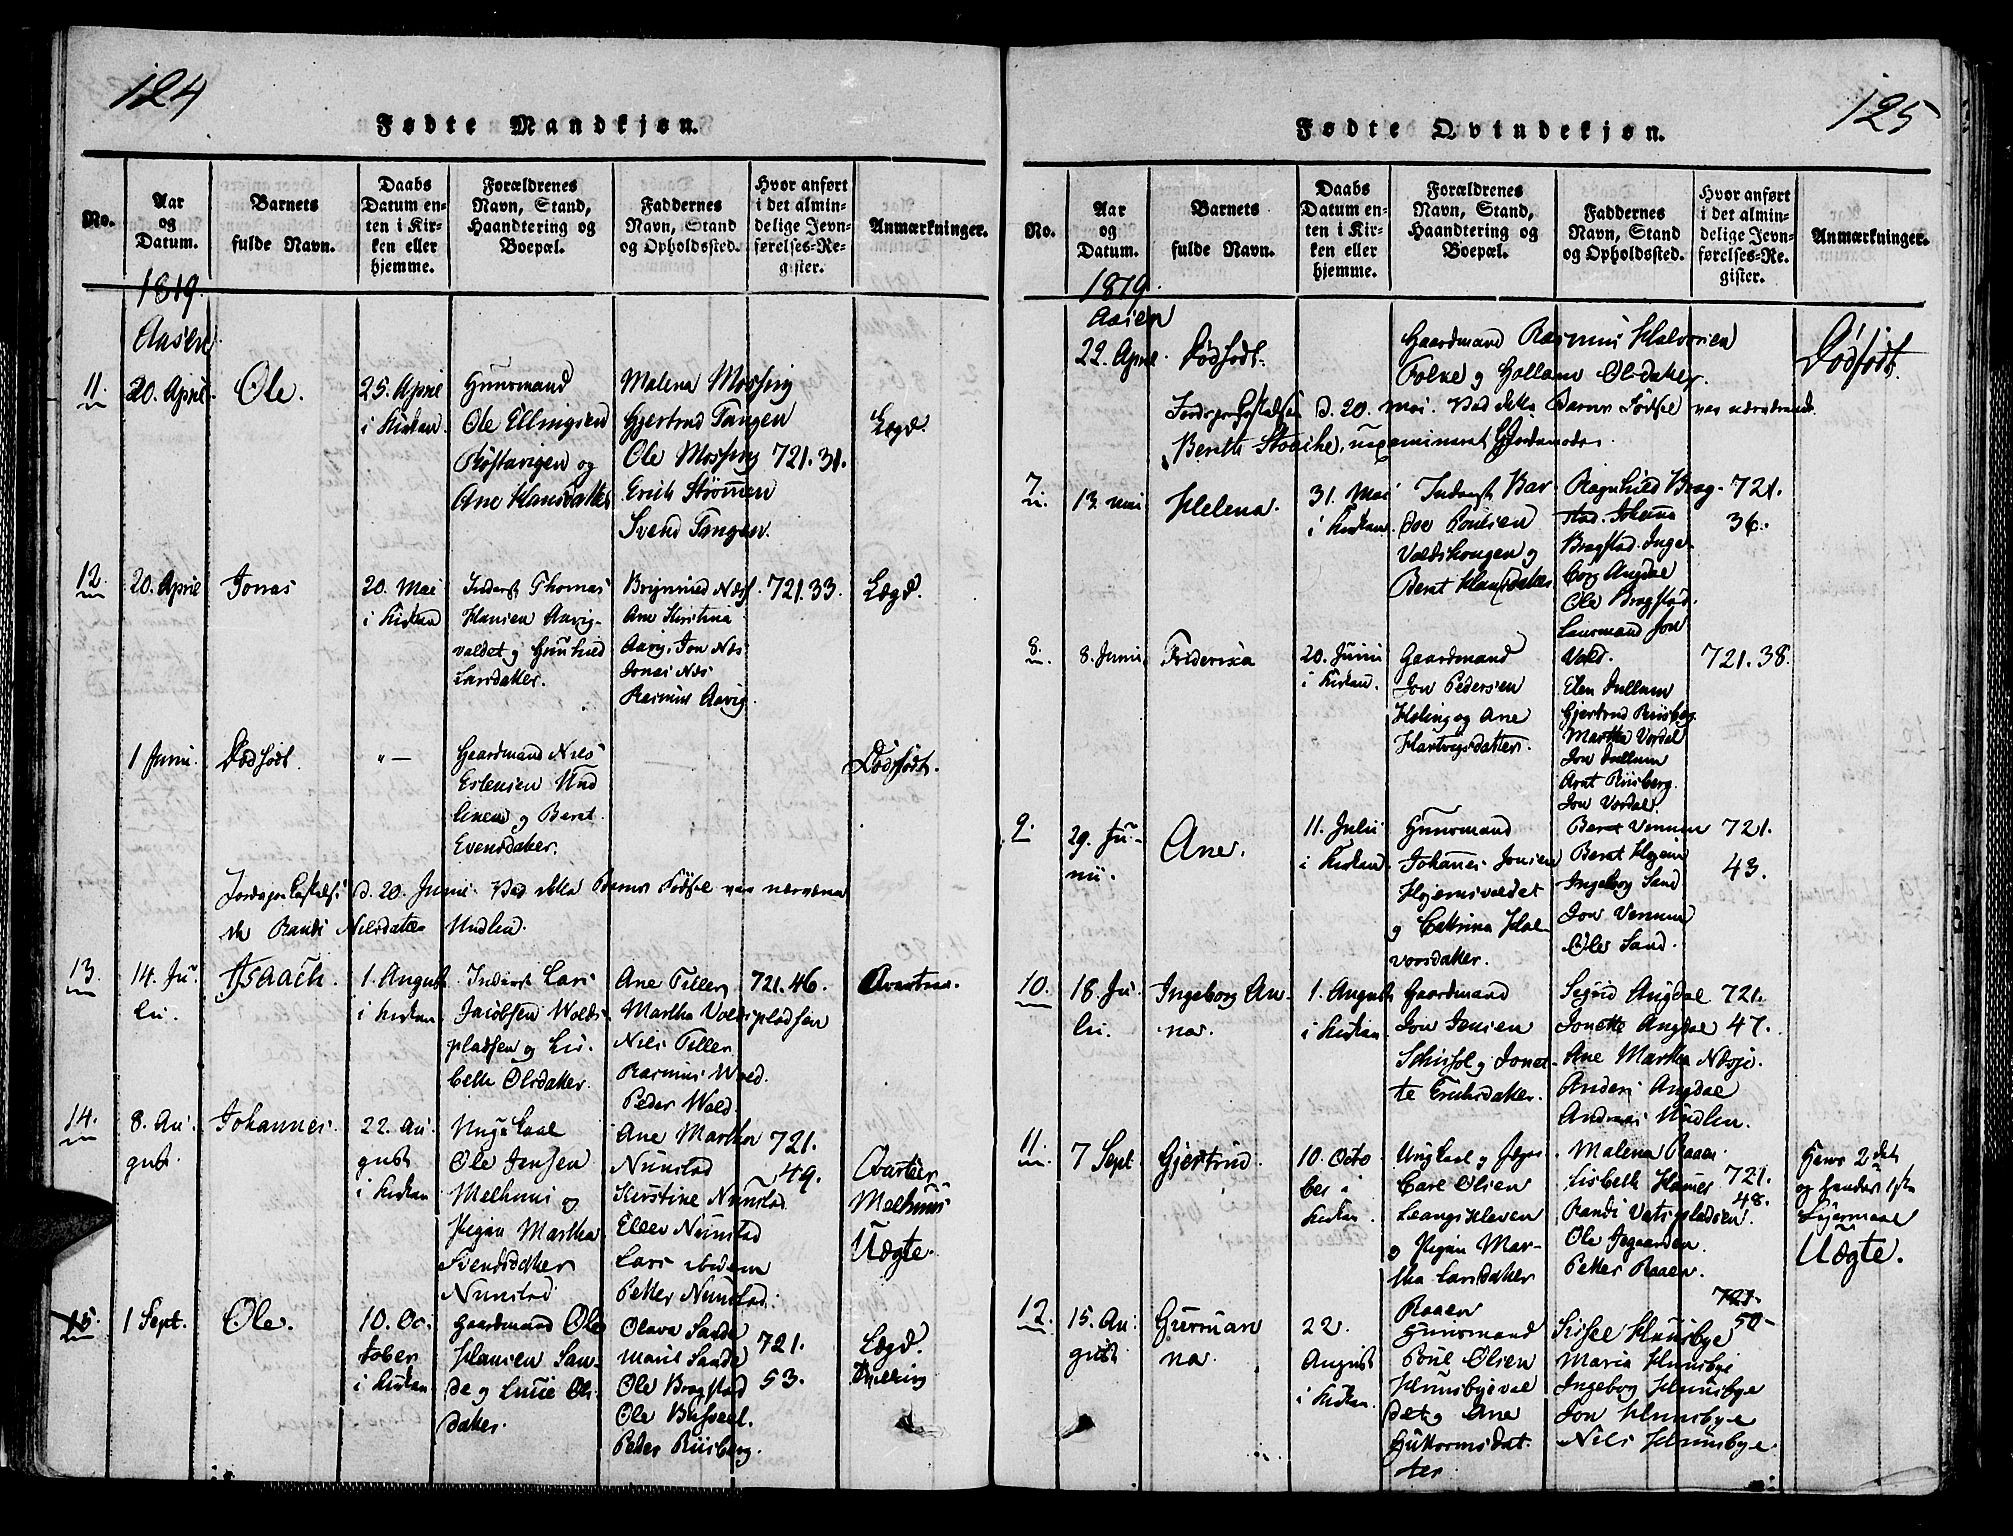 124
Fødte Mandkjøn.
No.
Aar
og
Datum.
Barnets
fulde Navn.
Daabs
Datum en-
ten i Kir-
ken eller
hjemme.
Forældrenes
Navn, Stand,
Haandtering og
Boepæl.
Faddernes
Navn, Stand
og Opholdssted.
Hvor anført
i det almin-
delige Jevn-
førelses-Re-
gister.
Anmærkninger.
1819.
Aasen
11
20. April
Ole.
25. April
i Kirken.
Huusmand
Ole Ellingsen
og
Ane Hansdatter
Malena Mossing
Gjertrud Tangen
Ole Mossing
Erich Strømen
Svend Tangen.
721. 31.
Lægd.
12.
20. April
Jonas
20. Mai
i Kirken
Inderst Thomas
Hansen Aavig-
valdet og Gunhild
Larsdatter.
Næss
Ane Kirstina
Aavig, Jon Næs
Jonas Næs
Rasmus Aavig
721. 33.
Lægd.
1 Junii.
Dødfødt
" —
Gaardmand Nils
Estensen Und
linen og Beret
Evensdatter.
Dødfødt.
Jordspaakastelse d. 20. Junii. Ved dette Barns Fødsel var nærværen
de Randi Nilsdatter Undlin.
13.
14. Ju-
lii.
Isaach.
1. August
i Kirken
Inderst Lars
Jacobsen Wolds-
pladsen og Lis-
beth Olsdatter.
Ane Tiller
Martha Voldspladsen
Nils Tiller
Rasmus Wold.
Peder Wold.
721. 46.
14.
8. Au-
gust.
Johannes.
22. Au-
gust
i Kirken
Ungkarl
Ole Jensen
Melhuus og
Pigen Martha
Svendsdatter
Nunstad
Ane Martha
Nunstad
Kirstine Nunstad
Eller Nunstad
Lars ibidem
Petter Nunstad.
721.
49.
Melhuus
Uægte.
15.
1 Sept.
Ole.
10. Oc-
tober
i Kirken
Gaardmand Ole
Hansen San-
de og Lucie Ols-
datter.
Olava Sande
Marit Sande
Ole Bragstad
Ole Busveet.
Peder Riisberg.
721.
53.
Lægd.
125
Fødte Qvindekjøn.
No.
Aar
og
Datum.
Barnets
fulde Navn.
Daabs
Datum en-
ten i Kir-
ken eller
hjemme.
Forældrenes
Navn, Stand,
Haandtering og
Boepæl.
Faddernes
Navn, Stand
og Opholdssted.
Hvor anført
i det almin-
delige Jevn-
førelses-Re-
gister.
Anmærkninger.
1819.
Aasen
22. April.
Dødfødt.
Gaardmand Rasmus Halvorsen
Folve og Olsdatter.
Dødfødt.
Jordspaakastelse d. 20. Mai. Ved dette Barns Fødsel var nærværende
Bereth uexamineret Gjordemoder.
7.
13. Mai
Helena.
31. Mai
i Kirken.
Inderst Bar-
doe Poulsen
Voldshougen og
Beret Hansdatter
Ragnhild Brag-
stad. Johanna
Bragstad. Inge-
borg Angdal
Ole Bragstad.
Lensmand Jon
Vold.
721.
36.
8.
8. Junii
Fridericha
20. Junii
i Kirken.
Gaardmand
Jon Pedersen
Høling og Ane
Hartvigsdatter.
Elen Jullum
Gjertrud Riisberg
Martha Vordal
Jon Jullum
Arnt Riisberg.
Jon Vordal.
721. 38.
9.
29. Ju-
nii.
Ane.
11. Julii
i Kirken
Huusmand
Johannes Jonsen
Hojemsvaldet
og Cathrina Hal-
vorsdatter.
Beret Vennun
Beret Hojem
Ingeborg Sand
Jon Vennun
Ole Sand.
721.
43.
10.
18. Ju-
lii.
Ingeborg An-
na.
1. August
i Kirken
Gaardmand
Jon Jensen
og Jonet-
te Erichsdatter.
Sigrid Angdal
Jonette Angdal
Ane Martha Næsje.
Anders Angdal
Andreas Undlen.
721.
47.
11.
7 Sept
Gjertrud.
10. Octo
ber i
Kirken.
Ungkarl og
Carl Olsen
Leangskleven
og Pigen Mar-
tha Larsdatter
Raaen
Malena Raaen
Lisbeth
Randi
Ole
Petter Raaen.
721.
48.
Hans 2det
og hendes 1ste
Leiermaal
Uægte.
12.
15. Au-
gust
Gurman
na.
22.
August
i Kirken.
Huusmand
Poul Olsen
Huusbyeval
det og Ane
Guttormsdat-
ter
Sissel Huusbye
Maria Huusbye
Ingeborg Huusbye
Jon Huusbye
Nils Huusbye.
721.
50.